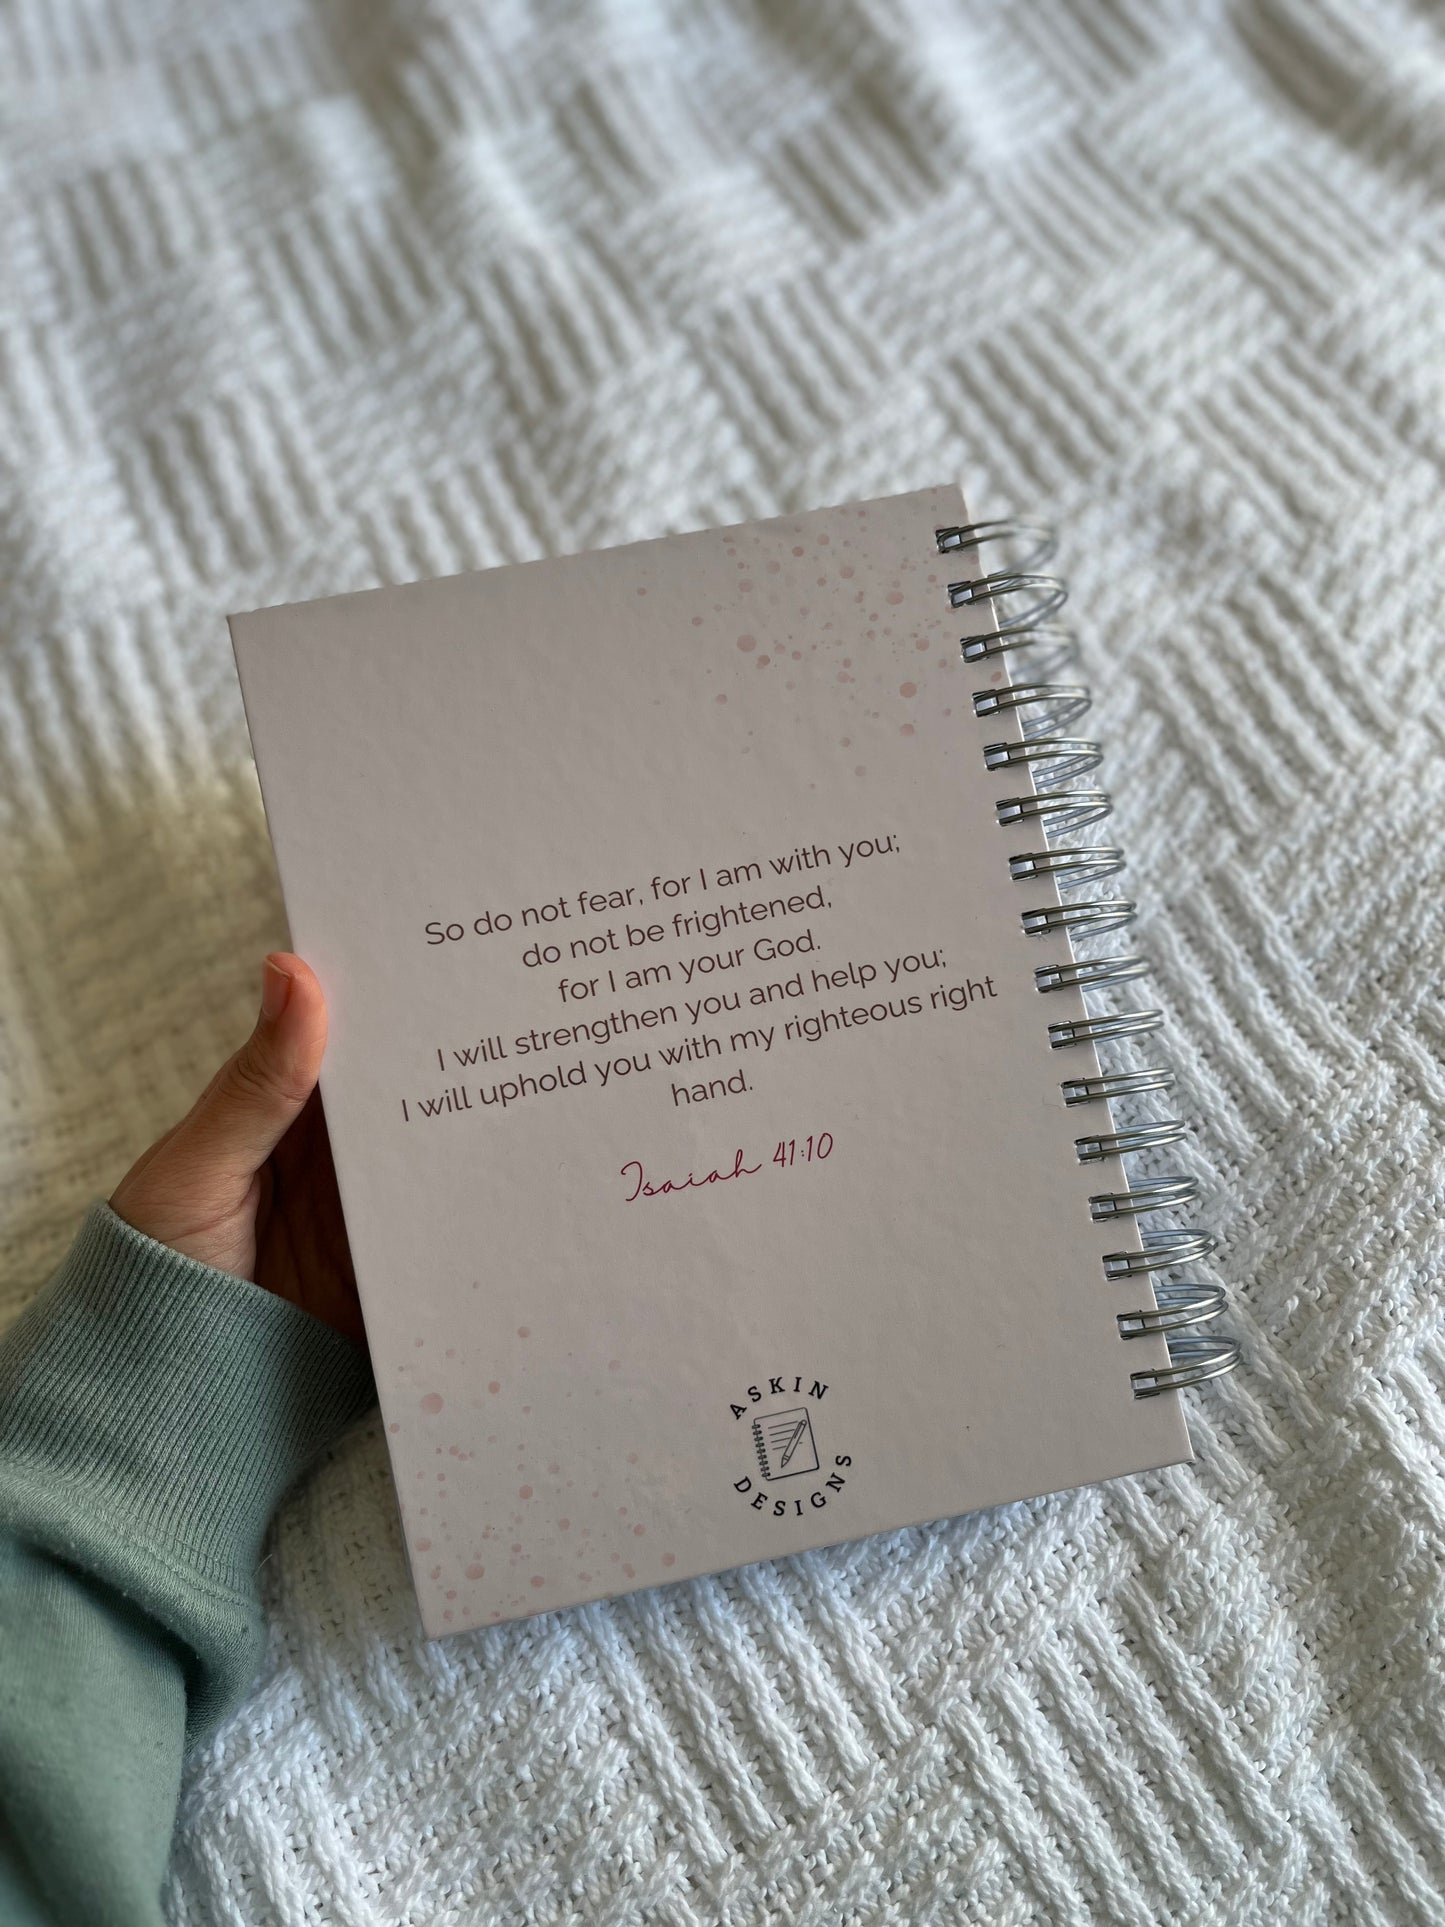 So do not fear, for I am with you;
do not be frightened,
for I am your God.
I will strengthen you and help you;
I will uphold you with my righteous right
hand.
Isaiah 41:10
ASKIN
DESIGNS